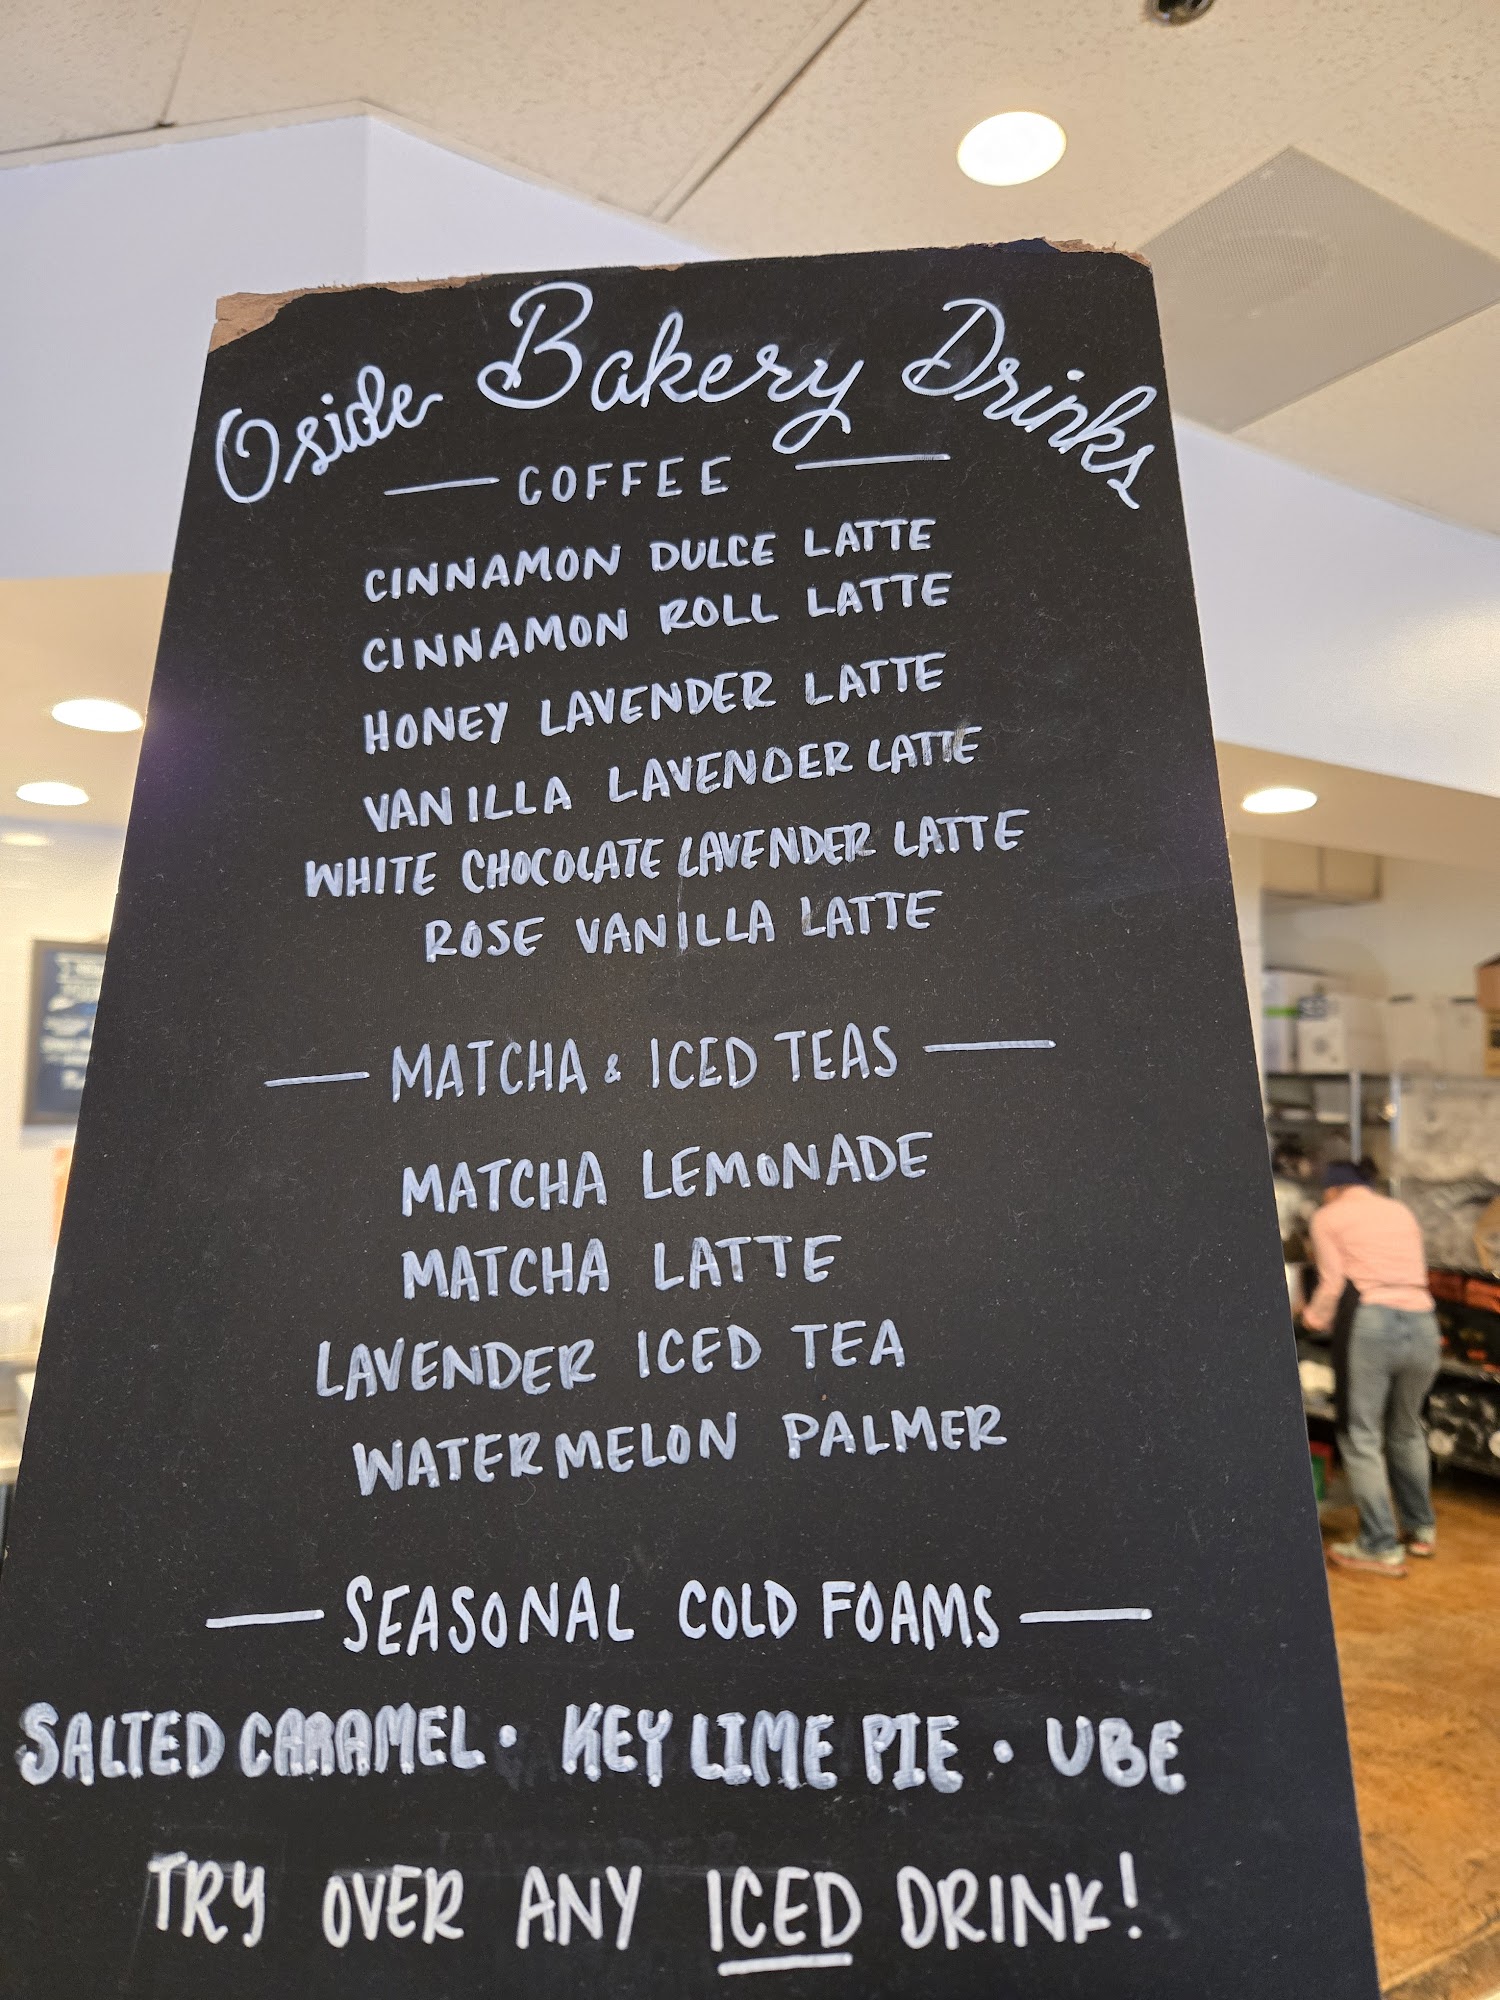 Oside Bakery Drinks
— COFFEE —
CINNAMON DULCE LATTE
CINNAMON ROLL LATTE
HONEY LAVENDER LATTE
VANILLA LAVENDER LATTE
WHITE CHOCOLATE LAVENDER LATTE
ROSE VANILLA LATTE
— MATCHA & ICED TEAS —
MATCHA LEMONADE
MATCHA LATTE
LAVENDER ICED TEA
WATERMELON PALMER
— SEASONAL COLD FOAMS —
SALTED CARAMEL • KEY LIME PIE • UBE
TRY OVER ANY ICED DRINK!